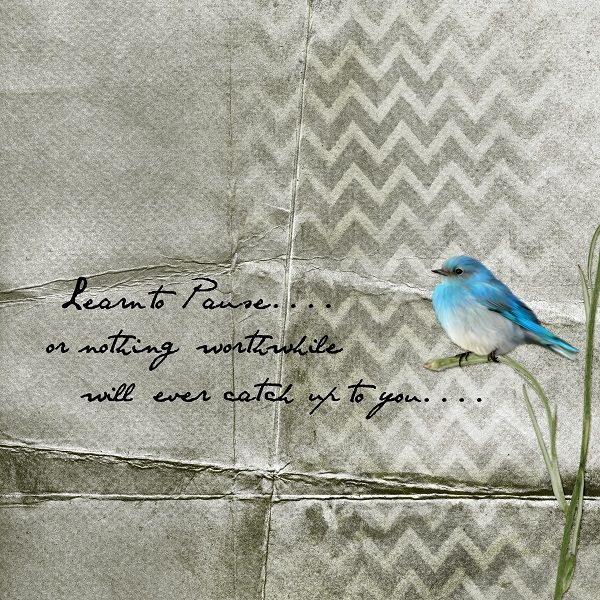 Learn to Pause....
or nothing worthwhile
will ever catch up to you....